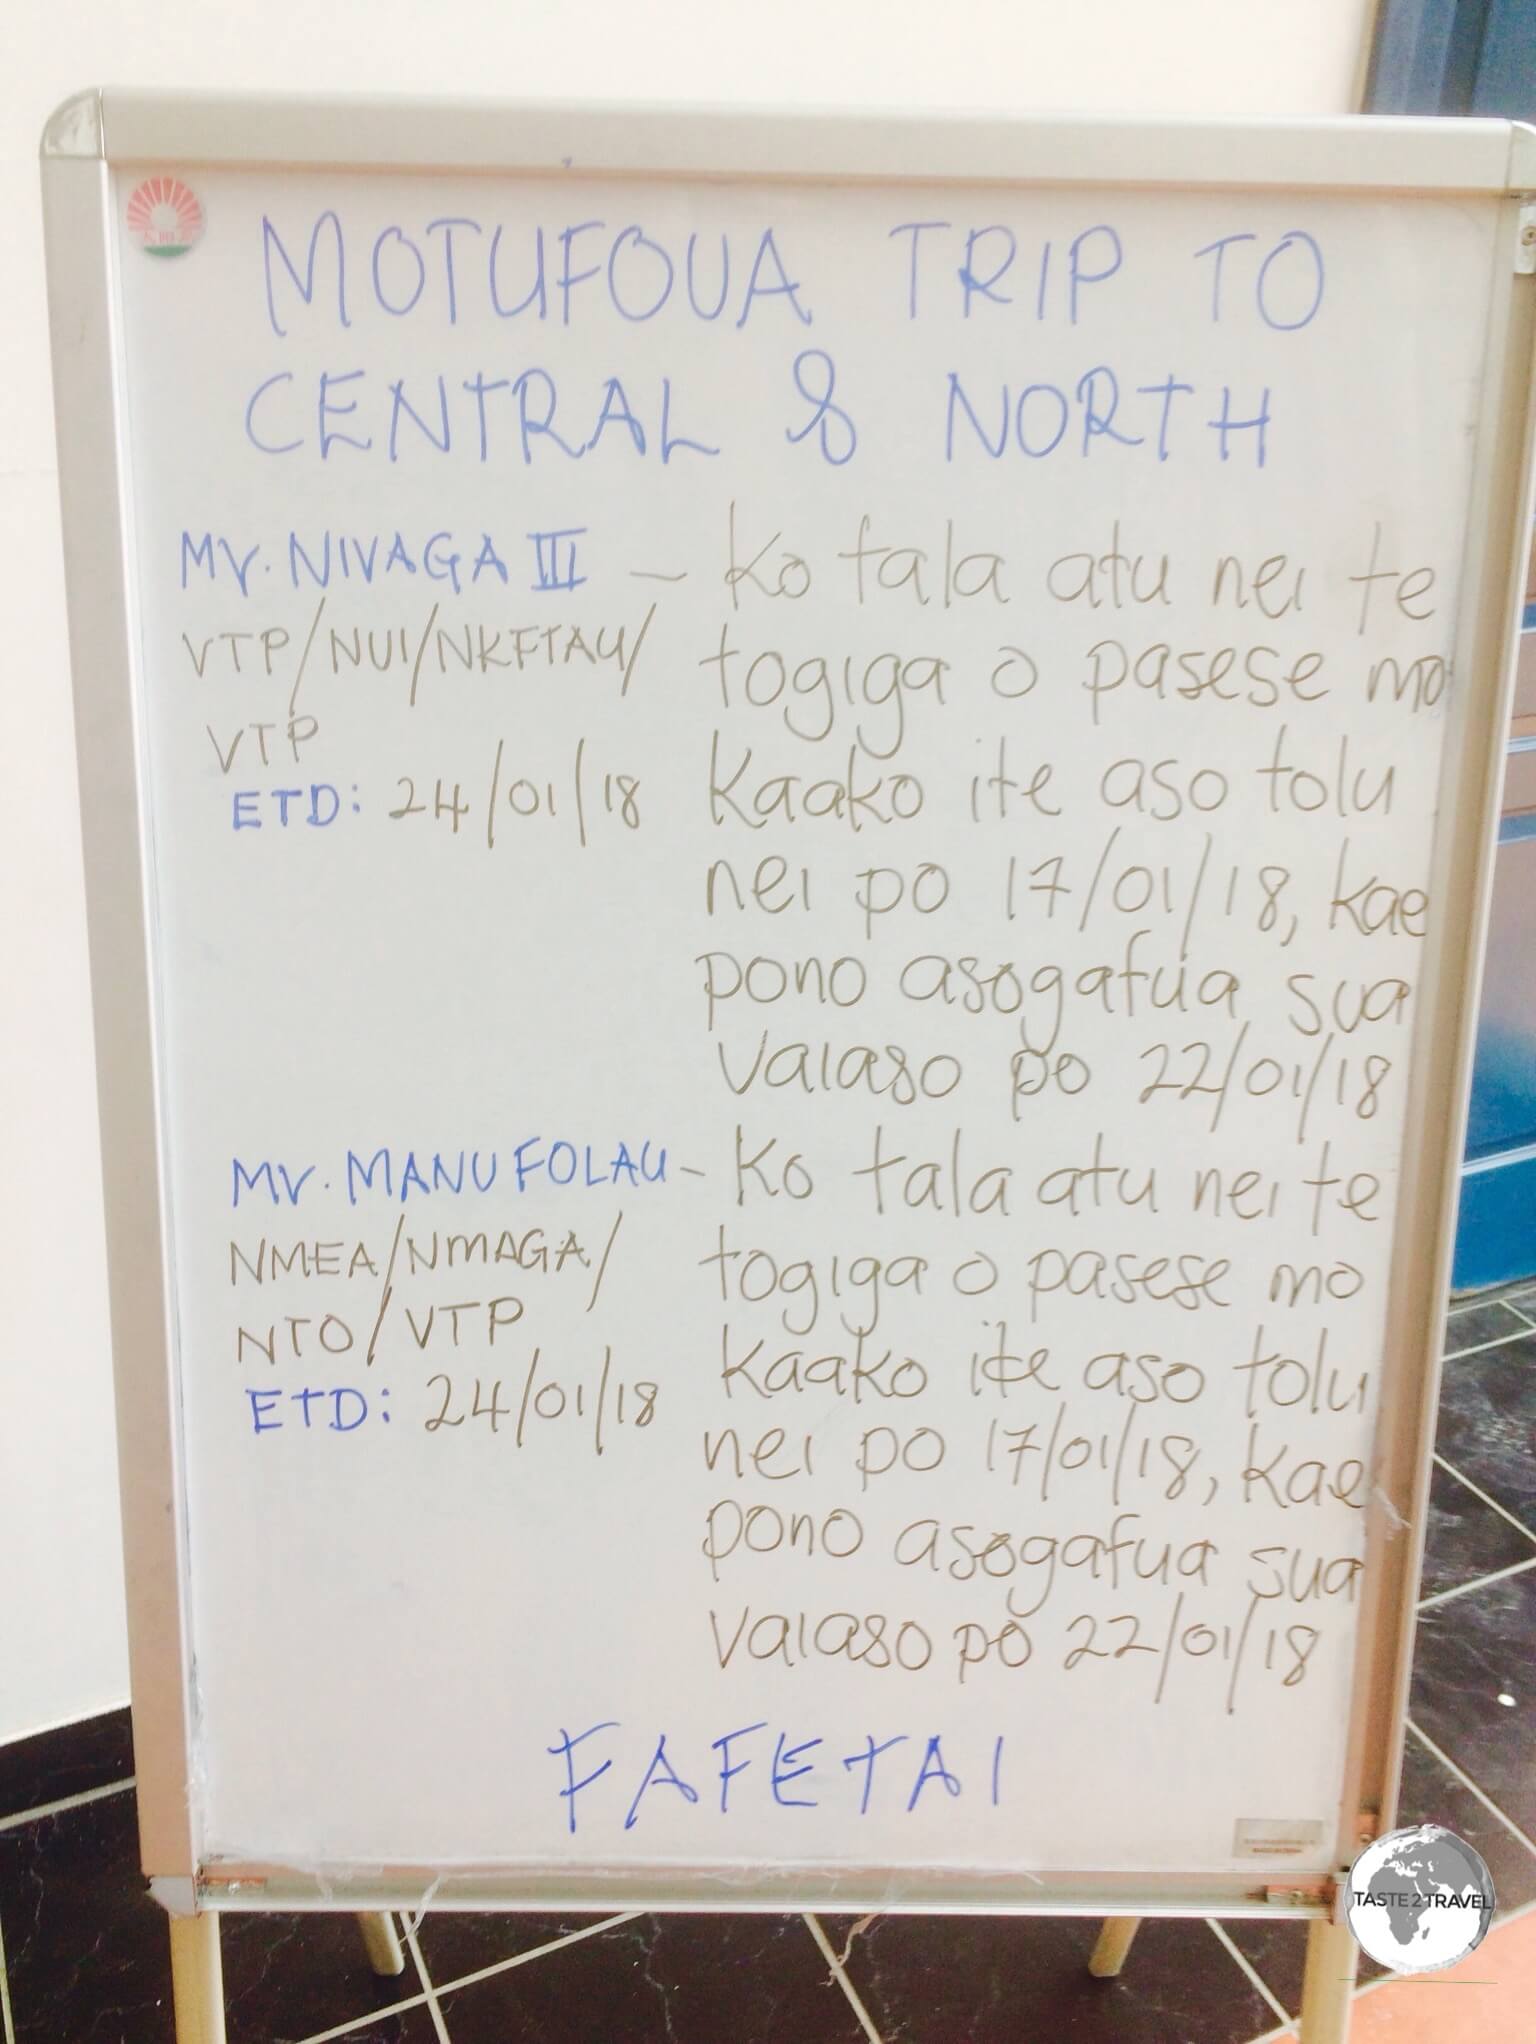 MOTUFOUA TRIP TO
CENTRAL & NORTH
MV. NIVAGA III -
VTP/NUI/NKFTAU/
VTP
ETD: 24/01/18
Ko tala atu nei te
togiga o pasese mo
kaako ite aso tolu
nei po 17/01/18, kae
pono asogafua sua
vaiaso po 22/01/18
MV. MANU FOLAU -
NMEA/NMAGA/
NTO/VTP
ETD: 24/01/18
Ko tala atu nei te
togiga o pasese mo
kaako ite aso tolu
nei po 17/01/18, kae
pono asogafua sua
vaiaso po 22/01/18
FAFETAI
TASTE2TRAVEL